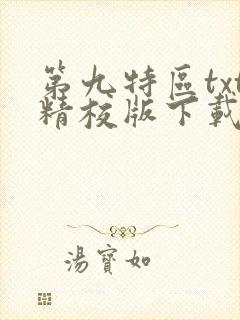 第九特區txt
精校版下載
湯寶如